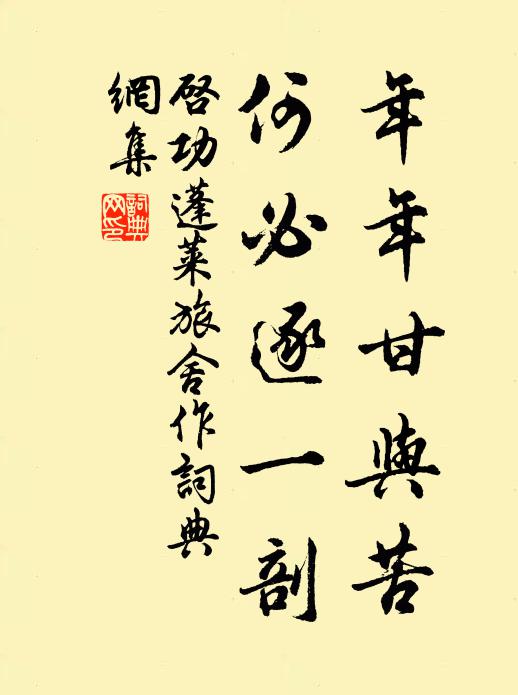 年年甘與苦
何必逐一剖
啓功蓬萊旅舍作詞典
網集
詞典網印